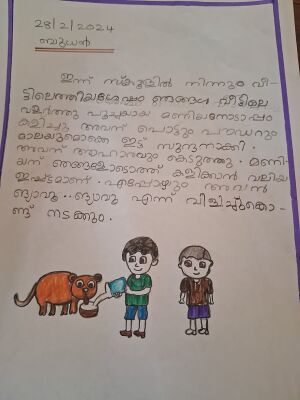 28/2/2024
ബുധൻ
ഇന്ന് സ്കൂളിൽ നിന്നും വീ-
ട്ടിലെത്തിയശേഷം ഞങ്ങൾ വീട്ടിലെ
വളർത്തു പൂച്ചയായ മണിയനോടൊപ്പം
കളിച്ചു അവന് പൊട്ടും പൗഡറും
മാലയുമൊക്കെ ഇട്ട് സുന്ദരനാക്കി.
അവന് ആഹാരവും കൊടുത്തു. മണി-
യന് ഞങ്ങളോടൊത്ത് കളിക്കാൻ വലിയ
ഇഷ്ടമാണ്. എപ്പോഴും അവൻ
മ്യാവൂ.. മ്യാവൂ എന്ന് വിളിച്ചുകൊ-
ണ്ട് നടക്കും.